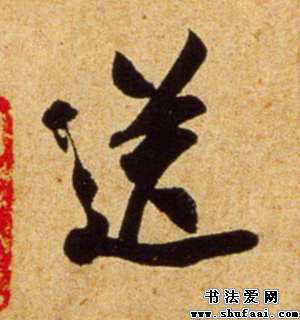 送
书法爱网
www.shufaai.com